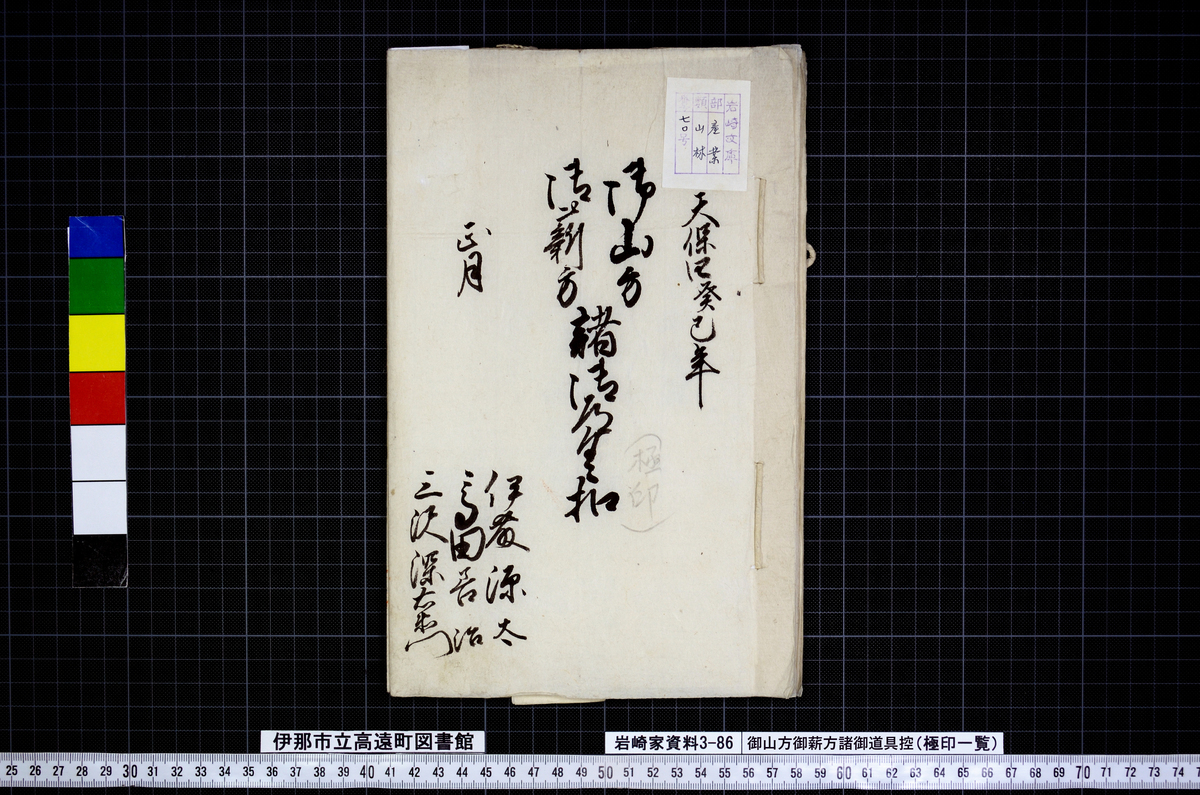 岩崎文庫
部 産業
類 山林
七〇号
天保四癸巳年
御山方
御薪方
諸御道具控
(極印)
正月
伊藤源太
高田善治
三沢深右衛門
伊那市立高遠町図書館
岩崎家資料3-86
御山方御薪方諸御道具控(極印一覧)
25 26 27 28 29 30 31 32 33 34 35 36 37 38 39 40 41 42 43 44 45 46 47 48 49 50 51 52 53 54 55 56 57 58 59 60 61 62 63 64 65 66 67 68 69 70 71 72 73 74